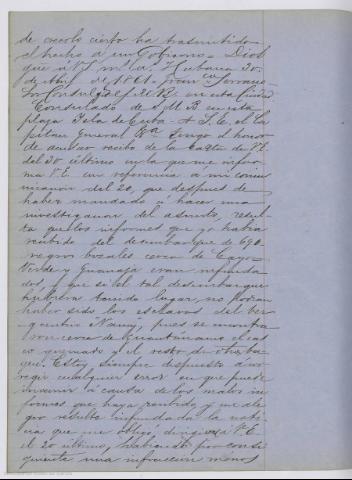 de creerlo cierto ha trasmitido
el hecho a un Gobierno - Dios
gue á V.E. ms. as. Habana 30
de Abril de 1861. Franco. Serrano
Sor Consul de S.M.B. en esta Ciudad
Consulado de S.M.B. en esta
plaza Isla de Cuba - A S.E. el Ca
pitan General &a. Tengo el honor
de acusar recibo de la carta de V.E.
del 30 último en la que me infor
ma V.E. en referencia a mi comu
nicacion del 20, que despues de
haber mandado á hacer una
investigacion del asunto, resul
ta que los informes que yo habia
recibido del desembarque de 690
negros bozales cerca de Cayo
Verde y Guanaja eran infunda
dos, y que si el tal desembarque
hubiera tenido lugar, no podian
haber sido los esclavos del ber
gantin Nancy, pues se encontra
ron cerca de Guantánamo el cas
co quemado y el resto de otro bu
que. Estoy siempre dispuesto á cor
regir cualquier error en que puede
incurrir á causa de los malos in
formes que haya recibido y me ale
gro resulte infundada la noti
cia que me obligó dirigirme á V.E.
el 20 último, habiendo por consi
guiente una infraccion menos